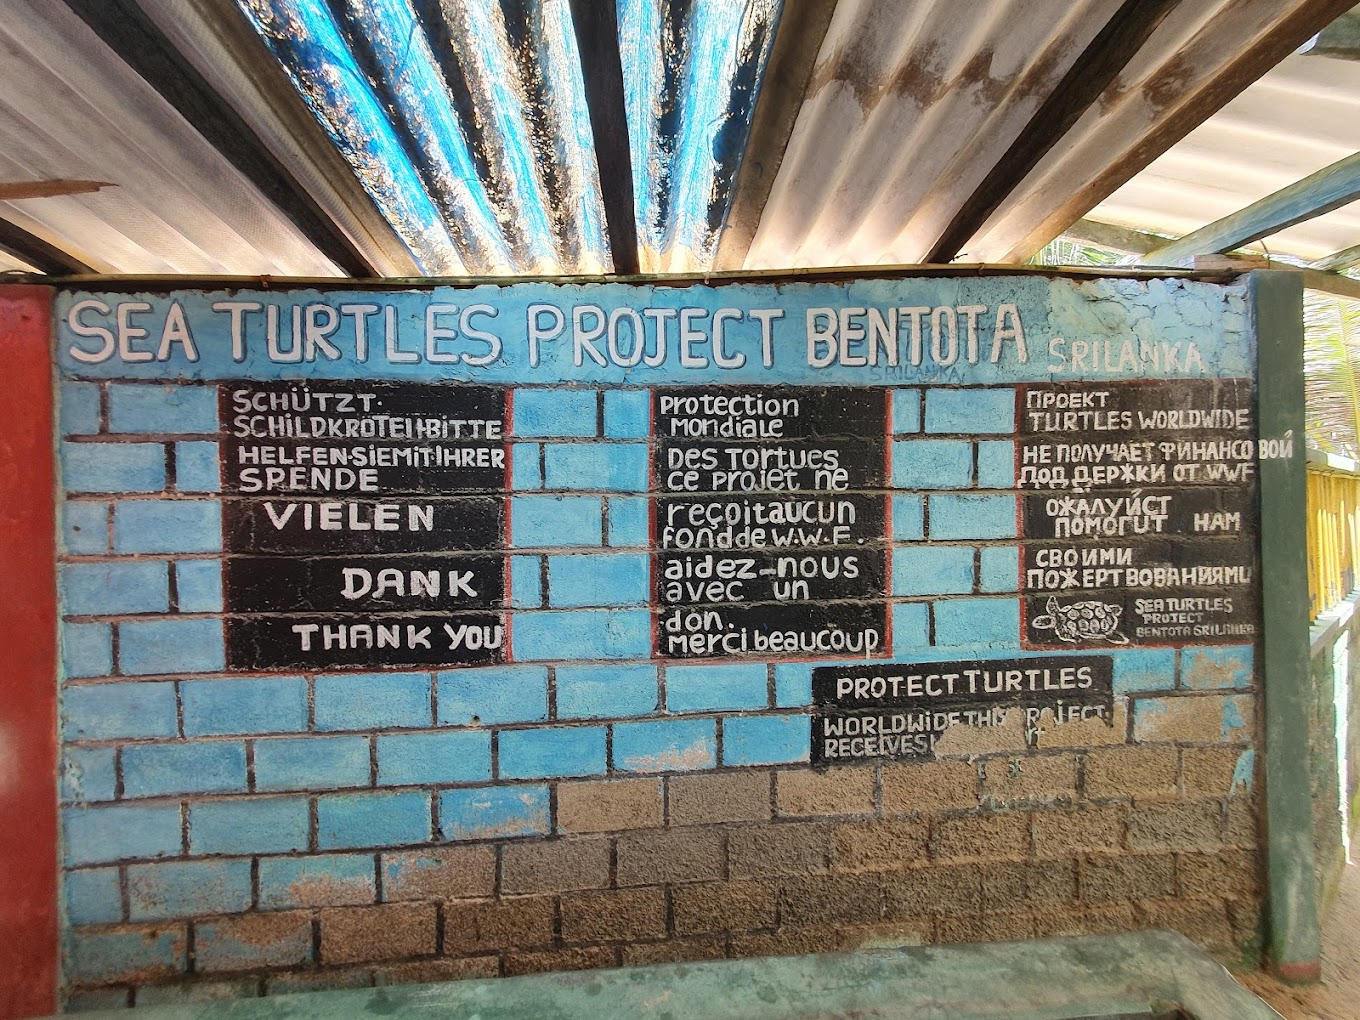 SEA TURTLES PROJECT BENTOTA SRILANKA
SRILANKA
SCHÜTZT.
SCHILDKRÖTEN·BITTE
HELFEN·SIEMITIHRER
SPENDE
VIELEN
DANK
THANK YOU
Protection
MONDIALE
DES TORTUES
CE PROJET NE
reçoitaucun
fondde W.W.F.
aidez-nous
avec un
don.
Merci beaucoup
ПРОЕКТ
TURTLES WORLDWIDE
НЕ ПОЛУЧАЕТ ФИНАНСОВОЙ
ПОД ДЕРЖКИ ОТ WWF
ОЖАЛУЙСТ
ПОМОГUТ НАМ
СВОИМИ
ПОЖЕРТВОВАНИЯМИ
SEA TURTLES
PROJECT
BENTOTA SRILANKA
PROTECT TURTLES
WORLDWIDE THIS PROJECT
RECEIVES